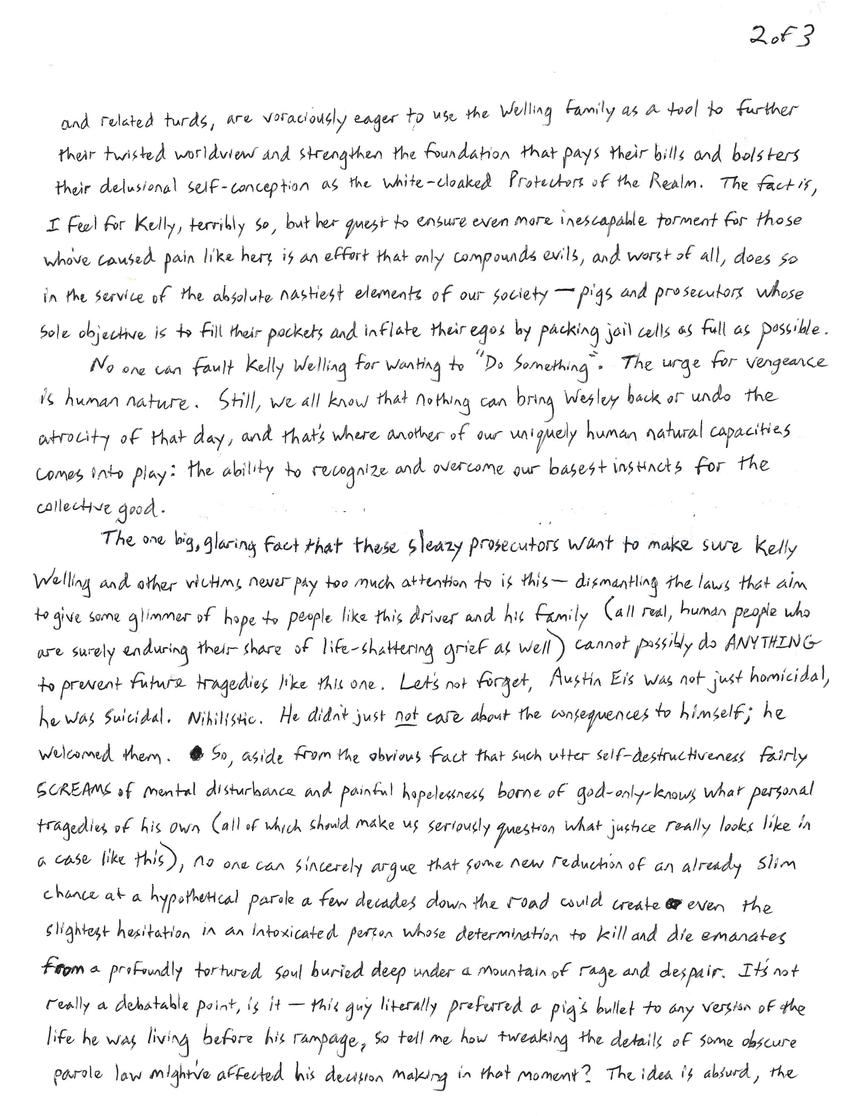 2 of 3
and related turds, are voraciously eager to use the Welling family as a tool to further
their twisted worldview and strengthen the foundation that pays their bills and bolsters
their delusional self-conception as the white-cloaked Protectors of the Realm. The fact is,
I feel for Kelly, terribly so, but her quest to ensure even more inescapable torment for those
who've caused pain like hers is an effort that only compounds evils, and worst of all, does so
in the service of the absolute nastiest elements of our society — pigs and prosecutors whose
sole objective is to fill their pockets and inflate their egos by packing jail cells as full as possible.
No one can fault Kelly Welling for wanting to "Do Something". The urge for vengeance
is human nature. Still, we all know that nothing can bring Wesley back or undo the
atrocity of that day, and that's where another of our uniquely human natural capacities
comes into play: the ability to recognize and overcome our basest instincts for the
collective good.
The one big, glaring fact that these sleazy prosecutors want to make sure Kelly
Welling and other victims never pay too much attention to is this — dismantling the laws that aim
to give some glimmer of hope to people like this driver and his family (all real, human people who
are surely enduring their share of life-shattering grief as well) cannot possibly do ANYTHING
to prevent future tragedies like this one. Let's not forget, Austin Eis was not just homicidal,
he was suicidal. Nihilistic. He didn't just not care about the consequences to himself; he
welcomed them. So, aside from the obvious fact that such utter self-destructiveness fairly
SCREAMS of mental disturbance and painful hopelessness borne of god-only-knows what personal
tragedies of his own (all of which should make us seriously question what justice really looks like in
a case like this), no one can sincerely argue that some new reduction of an already slim
chance at a hypothetical parole a few decades down the road could create even the
slightest hesitation in an intoxicated person whose determination to kill and die emanates
from a profoundly tortured soul buried deep under a mountain of rage and despair. It's not
really a debatable point, is it — this guy literally preferred a pig's bullet to any version of the
life he was living before his rampage, so tell me how tweaking the details of some obscure
parole law might've affected his decision making in that moment? The idea is absurd, the